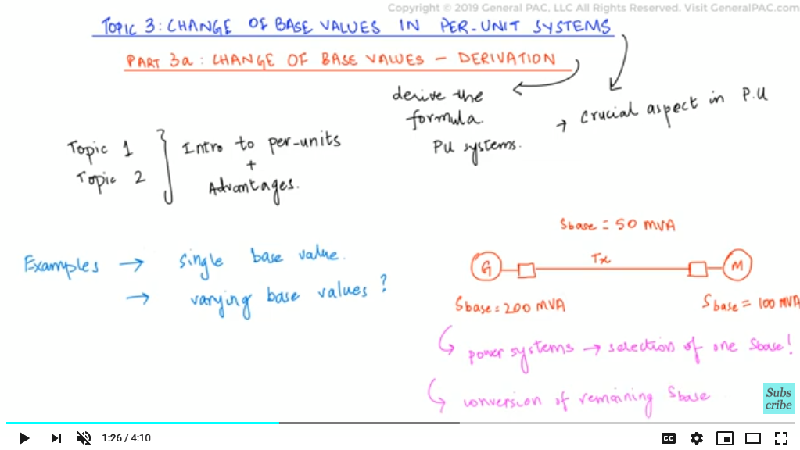 Copyright © 2019 General PAC, LLC All Rights Reserved. Visit GeneralPAC.com
TOPIC 3: CHANGE OF BASE VALUES IN PER-UNIT SYSTEMS
PART 3a: CHANGE OF BASE VALUES - DERIVATION
derive the
formula.
PU systems.
→ Crucial aspect in P.U
Topic 1
Topic 2
Intro to per-units
+
Advantages.
Examples → single base value.
→ varying base values?
Sbase = 50 MVA
G Tx M
Sbase = 200 MVA Sbase = 100 MVA
power systems → selection of one Sbase!
conversion of remaining Sbase
Subs
cribe
1:26 / 4:10